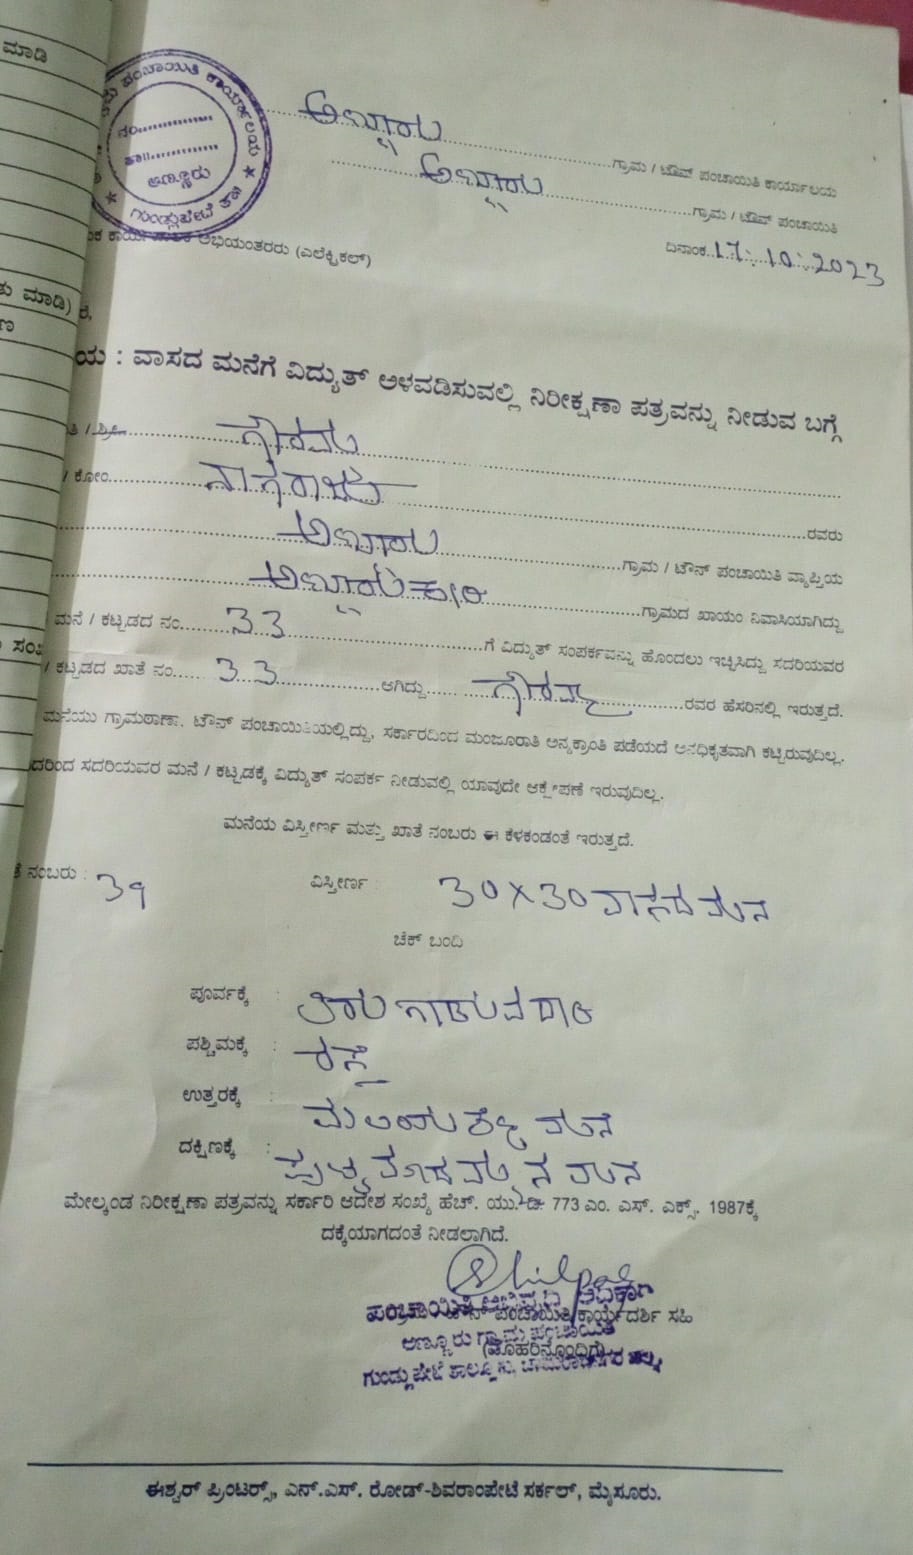 ಮಾಡಿ
ಪಂಚಾಯಿತಿ ಕಾರ್ಯಾಲಯ
ನಂ..............
ತಾ||.............
ಅಣ್ಣೂರು
★ ಗುಂಡ್ಲುಪೇಟೆ ತಾ|| ★
ಅಣ್ಣೂರು ಗ್ರಾಮ / ಟೌನ್ ಪಂಚಾಯಿತಿ ಕಾರ್ಯಾಲಯ
ಅಣ್ಣೂರು ಗ್ರಾಮ / ಟೌನ್ ಪಂಚಾಯಿತಿ
ದಿನಾಂಕ..17.10.2023
ಅಭಿಯಂತರರು (ಎಲೆಕ್ಟ್ರಿಕಲ್)
ತು ಮಾಡಿ)
ರೆ,
ಣ
ಯ : ವಾಸದ ಮನೆಗೆ ವಿದ್ಯುತ್ ಅಳವಡಿಸುವಲ್ಲಿ ನಿರೀಕ್ಷಣಾ ಪತ್ರವನ್ನು ನೀಡುವ ಬಗ್ಗೆ
ತಿ / ಶ್ರೀ ಗೌರಮ್ಮ
/ ಕೋಂ ನಾಗರಾಜು ರವರು
ಅಣ್ಣೂರು ಗ್ರಾಮ / ಟೌನ್ ಪಂಚಾಯಿತಿ ವ್ಯಾಪ್ತಿಯ
ಅಣ್ಣೂರುಕೇರಿ ಗ್ರಾಮದ ಖಾಯಂ ನಿವಾಸಿಯಾಗಿದ್ದು
ಮನೆ / ಕಟ್ಟಡದ ನಂ. 33 ಗೆ ವಿದ್ಯುತ್ ಸಂಪರ್ಕವನ್ನು ಹೊಂದಲು ಇಚ್ಛಿಸಿದ್ದು ಸದರಿಯವರ
/ ಕಟ್ಟಡದ ಖಾತೆ ನಂ. 33 ಆಗಿದ್ದು ಗೌರಮ್ಮ ರವರ ಹೆಸರಿನಲ್ಲಿ ಇರುತ್ತದೆ.
ಮನೆಯು ಗ್ರಾಮಠಾಣಾ, ಟೌನ್ ಪಂಚಾಯಿತಿಯಲ್ಲಿದ್ದು, ಸರ್ಕಾರದಿಂದ ಮಂಜೂರಾತಿ ಅನ್ಯಕ್ರಾಂತಿ ಪಡೆಯದೆ ಅನಧಿಕೃತವಾಗಿ ಕಟ್ಟಿರುವುದಿಲ್ಲ.
ದರಿಂದ ಸದರಿಯವರ ಮನೆ / ಕಟ್ಟಡಕ್ಕೆ ವಿದ್ಯುತ್ ಸಂಪರ್ಕ ನೀಡುವಲ್ಲಿ ಯಾವುದೇ ಆಕ್ಷೇಪಣೆ ಇರುವುದಿಲ್ಲ.
ಮನೆಯ ವಿಸ್ತೀರ್ಣ ಮತ್ತು ಖಾತೆ ನಂಬರು ಈ ಕೆಳಕಂಡಂತೆ ಇರುತ್ತದೆ.
ತೆ ನಂಬರು : 39 ವಿಸ್ತೀರ್ಣ : 30x30 ವಾಸದ ಮನೆ
ಚೆಕ್ ಬಂದಿ
ಪೂರ್ವಕ್ಕೆ :
ಪಶ್ಚಿಮಕ್ಕೆ : ರಸ್ತೆ
ಉತ್ತರಕ್ಕೆ : ಮನೆ
ದಕ್ಷಿಣಕ್ಕೆ : ಮನೆ
ಮೇಲ್ಕಂಡ ನಿರೀಕ್ಷಣಾ ಪತ್ರವನ್ನು ಸರ್ಕಾರಿ ಆದೇಶ ಸಂಖ್ಯೆ ಹೆಚ್. ಯು. ಡಿ. 773 ಎಂ. ಎಸ್. ಎಕ್ಸ್. 1987ಕ್ಕೆ
ದಕ್ಕೆಯಾಗದಂತೆ ನೀಡಲಾಗಿದೆ.
ಪಂಚಾಯಿತಿ ಅಭಿವೃದ್ಧಿ ಅಧಿಕಾರಿ
ಪಂಚಾಯಿತಿ ಕಾರ್ಯದರ್ಶಿ ಸಹಿ
ಅಣ್ಣೂರು ಗ್ರಾಮ ಪಂಚಾಯಿತಿ
(ಮೊಹರಿನೊಂದಿಗೆ)
ಗುಂಡ್ಲುಪೇಟೆ ತಾಲ್ಲೂಕು, ಚಾಮರಾಜನಗರ ಜಿಲ್ಲೆ
ಈಶ್ವರ್ ಪ್ರಿಂಟರ್ಸ್, ಎನ್.ಎಸ್. ರೋಡ್-ಶಿವರಾಂಪೇಟೆ ಸರ್ಕಲ್, ಮೈಸೂರು.